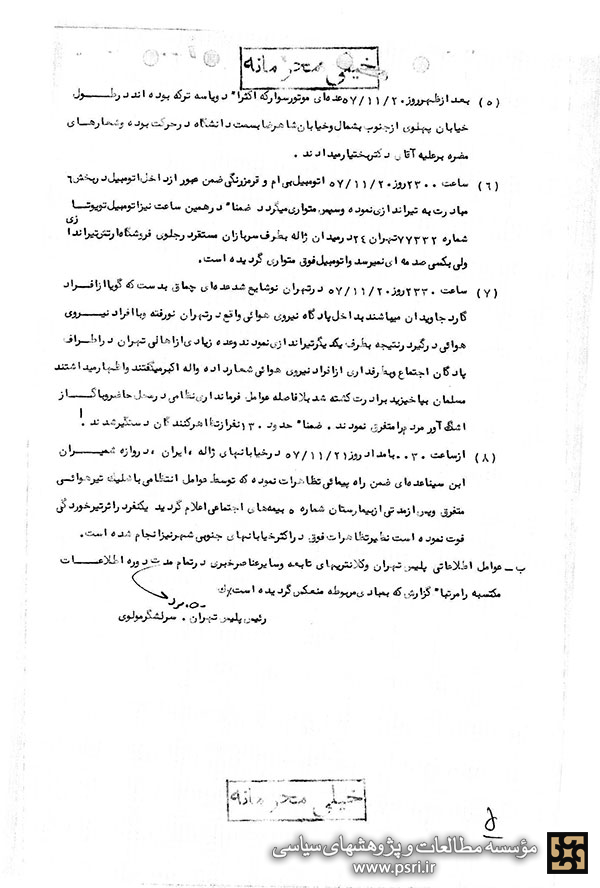 خیلی محرمانه
(۵) بعد از ظهر روز ۵۷/۱۱/۲۰ عده‌ای موتور سوار که اکثرا" دو یا سه ترکه بوده اند در طول
خیابان پهلوی از جنوب بشمال و خیابان شاهرضا بسمت دانشگاه در حرکت بوده و شعارهای
مضره بر علیه آقای دکتر بختیار میدادند .
(۶) ساعت ۲۳۰۰ روز ۵۷/۱۱/۲۰ اتومبیل بی ام و قرمز رنگی ضمن عبور از داخل اتومبیل در بخش ۶
مبادرت به تیراندازی نموده و سپس متواری میگردد ضمنا" در همین ساعت نیز اتومبیل تویوتا
شماره ۷۷۳۳۲ تهران ۲۴ در میدان ژاله بطرف سربازان مستقر در جلوی فروشگاه ارتش تیراندازی
ولی بکسی صدمه ای نمیرسد و اتومبیل فوق متواری گردیده است .
(۷) ساعت ۲۳۳۰ روز ۵۷/۱۱/۲۰ در تهران نو شایع شد عده‌ای چماق بدست که گویا از افراد
گارد جاویدان میباشند بداخل پادگاه نیروی هوائی واقع در تهران نو رفته و با افراد نیروی
هوائی درگیر در نتیجه بطرف یکدیگر تیراندازی نمودند و عده زیادی از اهالی تهران در اطراف
پادگان اجتماع و بطرفداری از افراد نیروی هوائی شعار داده و اله اکبر میگفتند و اظهار میداشتند
مسلمان بپا خیزید برادرت کشته شد بلافاصله عوامل فرمانداری نظامی در محل حاضر و با گاز
اشگ آور مردم را متفرق نمودند . ضمنا" حدود ۱۳۰ نفر از تظاهر کنندگان دستگیر شدند .
(۸) از ساعت ۰۰۳۰ بامداد روز ۵۷/۱۱/۲۱ در خیابانهای ژاله ، ایران ، دروازه شمیران
ابن سینا عده‌ای ضمن راه پیمائی تظاهرات نموده که توسط عوامل انتظامی با شلیک تیر هوائی
متفرق و پس از مدتی از بیمارستان شماره ۵ بیمه‌های اجتماعی اعلام گردید یکنفر در اثر تیر خوردگی
فوت نموده است نظیر تظاهرات فوق در اکثر خیابانهای جنوبی شهر نیز انجام شده است .
ب ـ عوامل اطلاعاتی پلیس تهران و کلانتریهای تابعه و سایر عناصر خبری در تمام مدت دوره اطلاعات
مکتسبه را مرتبا" گزارش که بمبادی مربوطه منعکس گردیده است
رئیس پلیس تهران . سرلشگر مولوی
خیلی محرمانه
مؤسسه مطالعات و پژوهشهای سیاسی
www.psri.ir